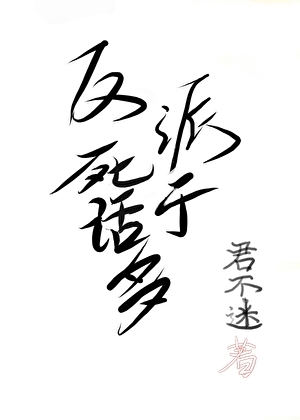 反派
死于
话多
君不迷
著